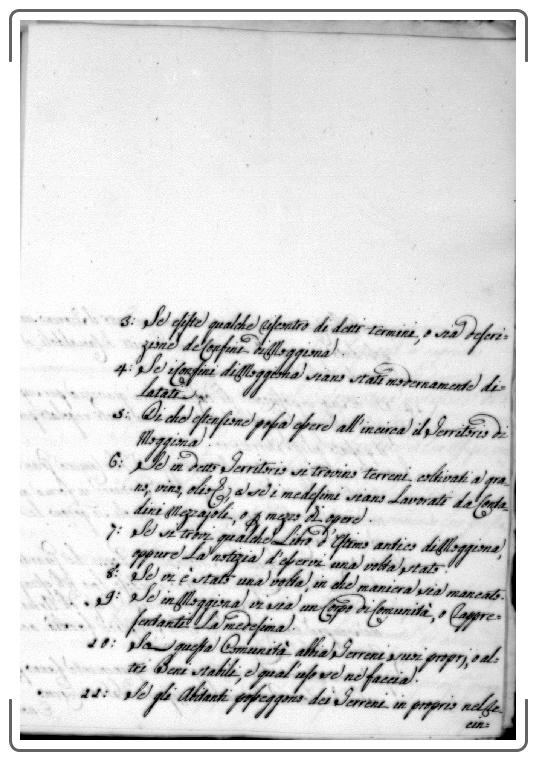 3: Se esiste qualche riscontro di detti termini, o sia descri=
zione de Confini di Moggiona.
4: Se i Confini di Moggiona siano stati modernamente di=
latati.
5: Di che estensione possa essere all'incirca il Territorio di
Moggiona.
6: Se in detto Territorio si trovino terreni coltivati a gra=
no, vino, olio &, e se i medesimi siano Lavorati da Conta
dini Mezzajoli, o p mezzo di opere.
7: Se si trovi qualche Libro d'Estimo antico di Moggiona,
oppure La notizia d'esservi una volta stato.
8: Se vi è stato una volta, in che maniera sia mancato.
9: Se in Moggiona vi sia un Corpo di Comunità, o Rappre=
sentante La medesima.
10: Se questa Comunità abbia Terreni suoi proprj, o al=
tri Beni stabili, e qual'uso se ne faccia.
11: Se gli Abitanti posseggono dei Terreni in proprio nelle
cin=